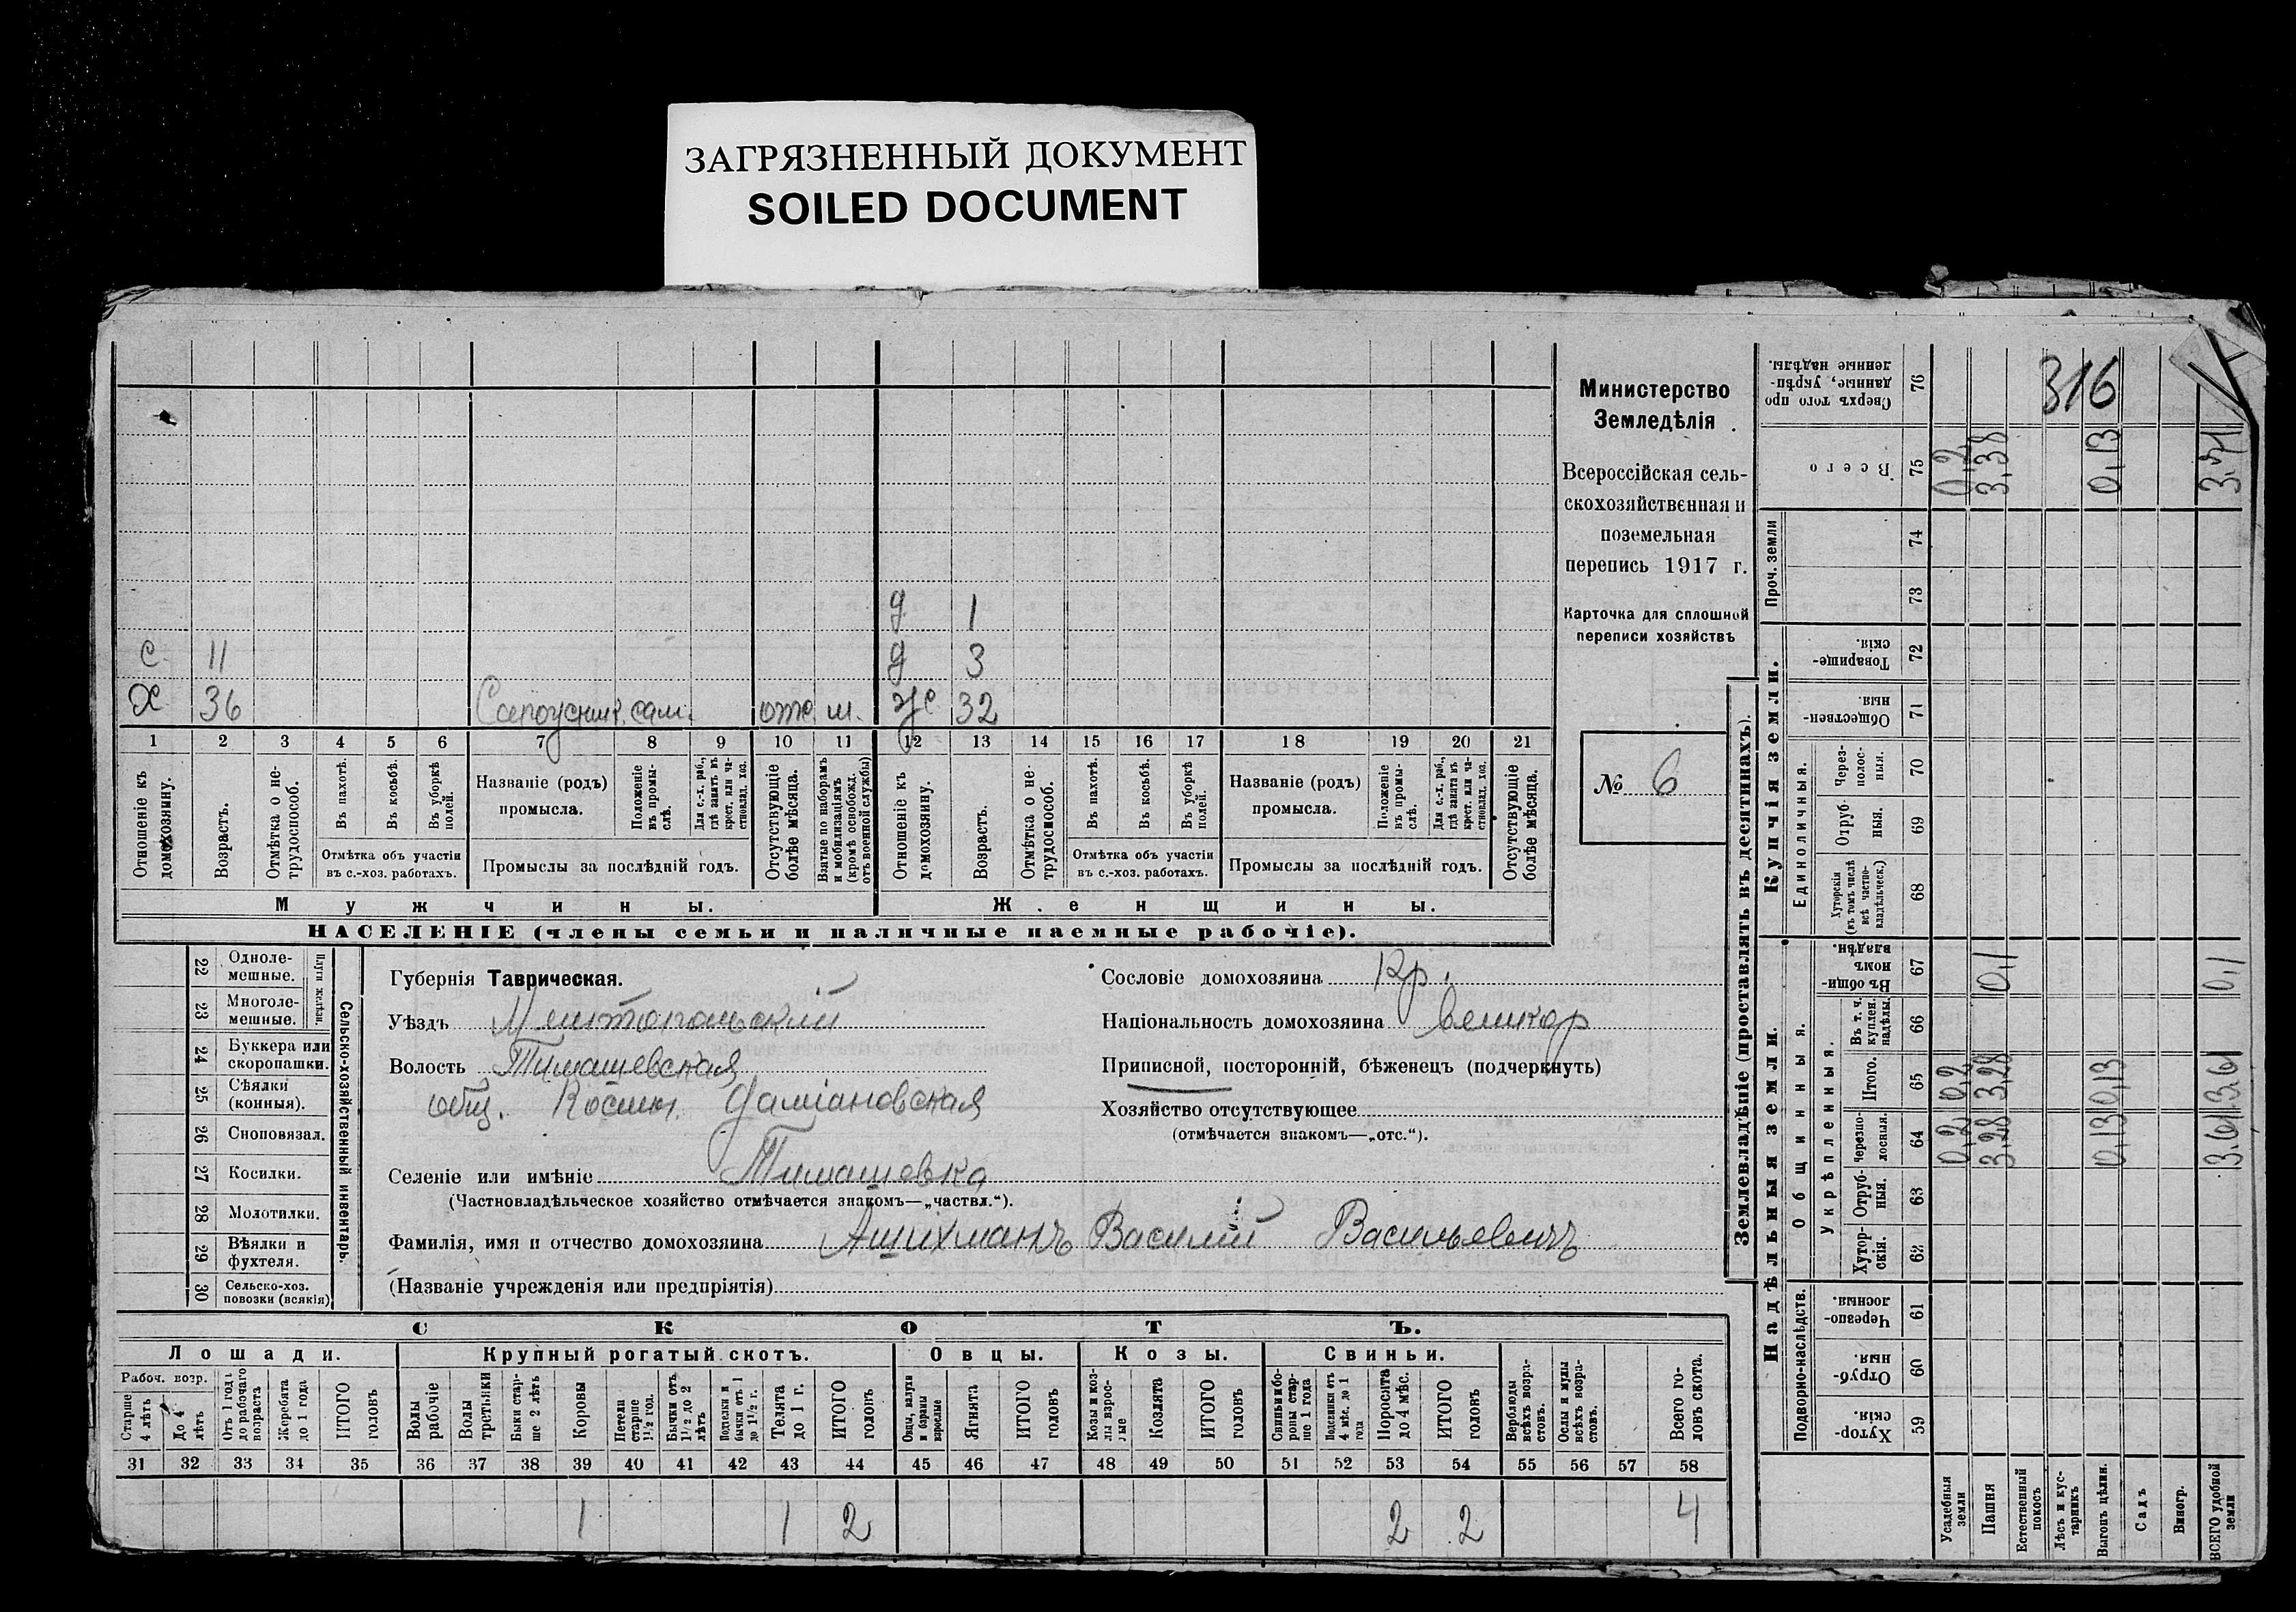 ЗАГРЯЗНЕННЫЙ ДОКУМЕНТ
SOILED DOCUMENT
Министерство
Земледѣлія
Всероссійская сель-
скохозяйственная и
поземельная
перепись 1917 г.
Карточка для сплошной
переписи хозяйствъ
№ 6
д 1
с 11 д 3
Х 36 сам. отс. м. ж 32
1 2 3 4 5 6 7 8 9 10 11 12 13 14 15 16 17 18 19 20 21
Отношеніе къ домохозяину.
Возрастъ.
Отмѣтка о не-трудоспособ.
Въ пахотѣ.
Въ косьбѣ.
Въ уборкѣ полей.
Отмѣтка объ участіи
въ с.-хоз. работахъ.
Названіе (родъ)
промысла.
Положеніе въ промы-слѣ.
Для с.-х. раб., гдѣ занятъ въ крест. или ча-стновлад. хоз.
Промыслы за послѣдній годъ.
Отсутствующіе болѣе мѣсяца.
Взятые по наборамъ и мобилизаціямъ (кромѣ освобожд. отъ военной службы)
Отношеніе къ домохозяину.
Возрастъ.
Отмѣтка о не-трудоспособ.
Въ пахотѣ.
Въ косьбѣ.
Въ уборкѣ полей.
Отмѣтка объ участіи
въ с.-хоз. работахъ.
Названіе (родъ)
промысла.
Положеніе въ промы-слѣ.
Для с.-х. раб., гдѣ занята въ крест. или ча-стновлад. хоз.
Промыслы за послѣдній годъ.
Отсутствующіе болѣе мѣсяца.
Мужчины. Женщины.
НАСЕЛЕНІЕ (члены семьи и наличные наемные рабочіе).
Сельско-хозяйственный инвентарь.
Плуги желѣзн.
22 Одноле-мешные.
23 Многоле-мешные.
24 Буккера или скоропашки.
25 Сѣялки (конныя).
26 Сноповязал.
27 Косилки.
28 Молотилки.
29 Вѣялки и фухтеля.
30 Сельско-хоз. повозки (всякія)
Губернія Таврическая.
Уѣздъ Мелитопольский
Волость Тимашевская
общ. Косьмо Даміановская
Селеніе или имѣніе Тимашевка
(Частновладѣльческое хозяйство отмѣчается знакомъ—„частвл.“).
Фамилія, имя и отчество домохозяина Ашихманъ Василій Васильевичъ
(Названіе учрежденія или предпріятія)
Сословіе домохозяина Кр.
Національность домохозяина великор
Приписной, посторонній, бѣженец (подчеркнуть)
Хозяйство отсутствующее
(отмѣчается знакомъ—„отс.“).
СКОТЪ.
Лошади. Крупный рогатый скотъ. Овцы. Козы. Свиньи.
Рабоч. возр.
Старше 4 лѣтъ
До 4 лѣтъ
Отъ 1 года до рабочаго возраста
Жеребята до 1 года
ИТОГО головъ
Волы рабочіе
Волы третьяки
Быки стар-ше 2 лѣтъ
Коровы
Нетели старше 1½ год.
Бычки отъ 1½ до 2 лѣтъ
Подтелки и бычки отъ 1 до 1½ г.
Телята до 1 г.
ИТОГО головъ
Овцы, валухи и бараны взрослые
Ягнята
ИТОГО головъ
Козы и коз-лы взрос-лые
Козлята
ИТОГО головъ
Свиньи и бо-ровы стар-ше 1 года
Подсвинки отъ 4 мѣс. до 1 года
Поросята до 4 мѣс.
ИТОГО головъ
Верблюды всѣхъ возра-стовъ.
Ослы и мулы всѣхъ возра-стовъ.
Всего го-ловъ скота.
31 32 33 34 35 36 37 38 39 40 41 42 43 44 45 46 47 48 49 50 51 52 53 54 55 56 57 58
1 1 2 2 2 4
Землевладѣніе (проставлять въ десятинахъ).
Надѣльныя земли. Купчія земли.
Проч. земли
Подворно-наслѣдств.
Общинныя.
Укрѣпленныя.
Единоличныя.
Сверхъ того про данные, укрѣп-ленные надѣлы. 76 316
Всего 75 0,2 3,38 0,13 3,71
74
73
Товарище-скія. 72
Обществен-ныя 71
Через-полос-ныя. 70
Отруб-ныя. 69
Хуторскія (въ томъ числѣ всѣ частно-владѣльческ.) 68
Въ общи-номъ владѣн. 67 0,1 0,1
Въ т. ч. куплен. надѣлы. 66
Итого. 65 0,2 3,28 0,13 3,61
Черезпо-лосныя. 64 0,2 3,28 0,13 3,61
Отруб-ныя. 63
Хутор-скія. 62
Черезпо-лосныя. 61
Отруб-ныя. 60
Хутор-скія. 59
Усадебныя земли
Пашня
Естественный покосъ
Лѣсъ и кус-тарникъ
Выгонъ цѣлин.
Садъ
Виногр.
ВСЕГО удобной земли